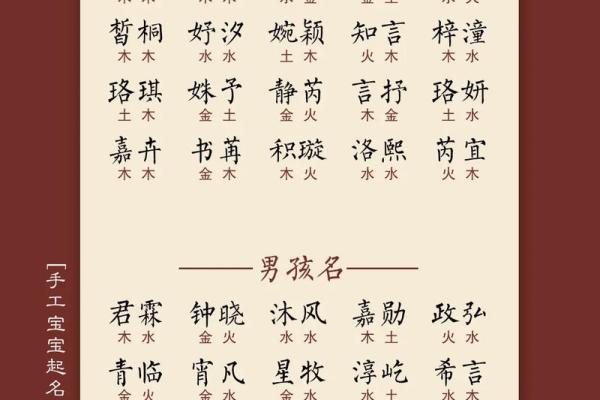 晳桐 妤汐 婉颖 知言 梓潼
木木 水水 土木 火木 木水
珞琪 姝予 静芮 言抒 珞妍
土木 金土 金火 木金 土水
嘉卉 书苒 积璇 洛熙 芮宜
木木 金木 木火 水水 火木
男孩名
君霖 钟晓 沐风 嘉勋 政弘
木水 金火 水水 木土 火水
青临 宵凡 星牧 淳屹 希言
金火 金水 金水 水土 水木
[手工宝宝起名